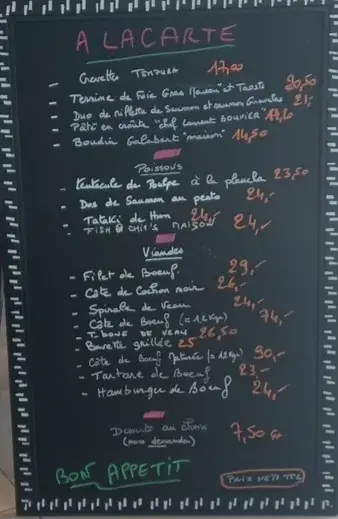 A LA CARTE
- Crevettes TEMPURA 17,00
- Terrine de Foie Gras Maison et Toasts 20,50
- Duo de rillette de Saumon et saumon Gravelax 21,-
- Pâté en croûte "chef laurent BOUVIER"
- Boudin Galabart "maison" 14,50
POISSONS
- tentacule de Poulpe à la plancha 23,50
- Dos de Saumon au pesto 24,-
- Tataki de Thon 24,-
- FISH & CHIP'S MAISON 24,-
Viandes
- Filet de Boeuf 29,-
- Côte de Cochon noir 26,-
- Spirale de Veau 24,-
- Côte de Boeuf (= 1,2 Kg) 74,-
- T-BONE DE VEAU 26,50
- Bavette grillée 25
- Côte de Boeuf Maturée 90,-
- Tartare de Boeuf 23,-
- Hamburger de Boeuf 24,-
Desserts au choix 7,50
(nous demander)
BON APPETIT
PRIX NETS TTC